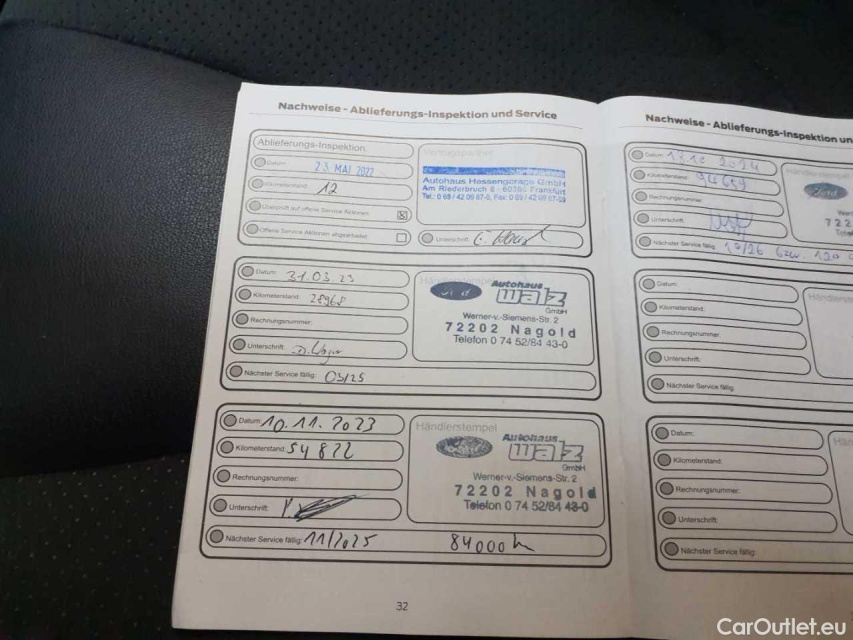 Nachweise - Ablieferungs-Inspektion und Service
Ablieferungs-Inspektion
Datum: 23. MAI 2022
Kilometerstand: 12
Überprüft auf offene Service Aktionen
Offene Service Aktionen abgearbeitet
Vertragspartner
Autohaus Hessengarage GmbH
Am Riederbruch 8 - 60386 Frankfurt
Unterschrift:
Datum: 31.03.23
Kilometerstand: 28968
Rechnungsnummer:
Unterschrift:
Nächster Service fällig: 03/25
Händlerstempel
Autohaus
walz
GmbH
Werner-v.-Siemens-Str. 2
72202 Nagold
Telefon 0 74 52/84 43-0
Datum: 10.11.2023
Kilometerstand: 54822
Rechnungsnummer:
Unterschrift:
Nächster Service fällig: 11/2025 84000
Händlerstempel
Autohaus
walz
GmbH
Werner-v.-Siemens-Str. 2
72202 Nagold
Telefon 0 74 52/84 43-0
32
Nachweise - Ablieferungs-Inspektion un
Datum: 2024
Kilometerstand: 94659
Rechnungsnummer:
Unterschrift:
Nächster Service fällig: 10/26 bzw. 120
Ford
Datum:
Kilometerstand:
Rechnungsnummer:
Unterschrift:
Nächster Service fällig:
Datum:
Kilometerstand:
Rechnungsnummer:
Unterschrift:
Nächster Service fällig:
CarOutlet.eu